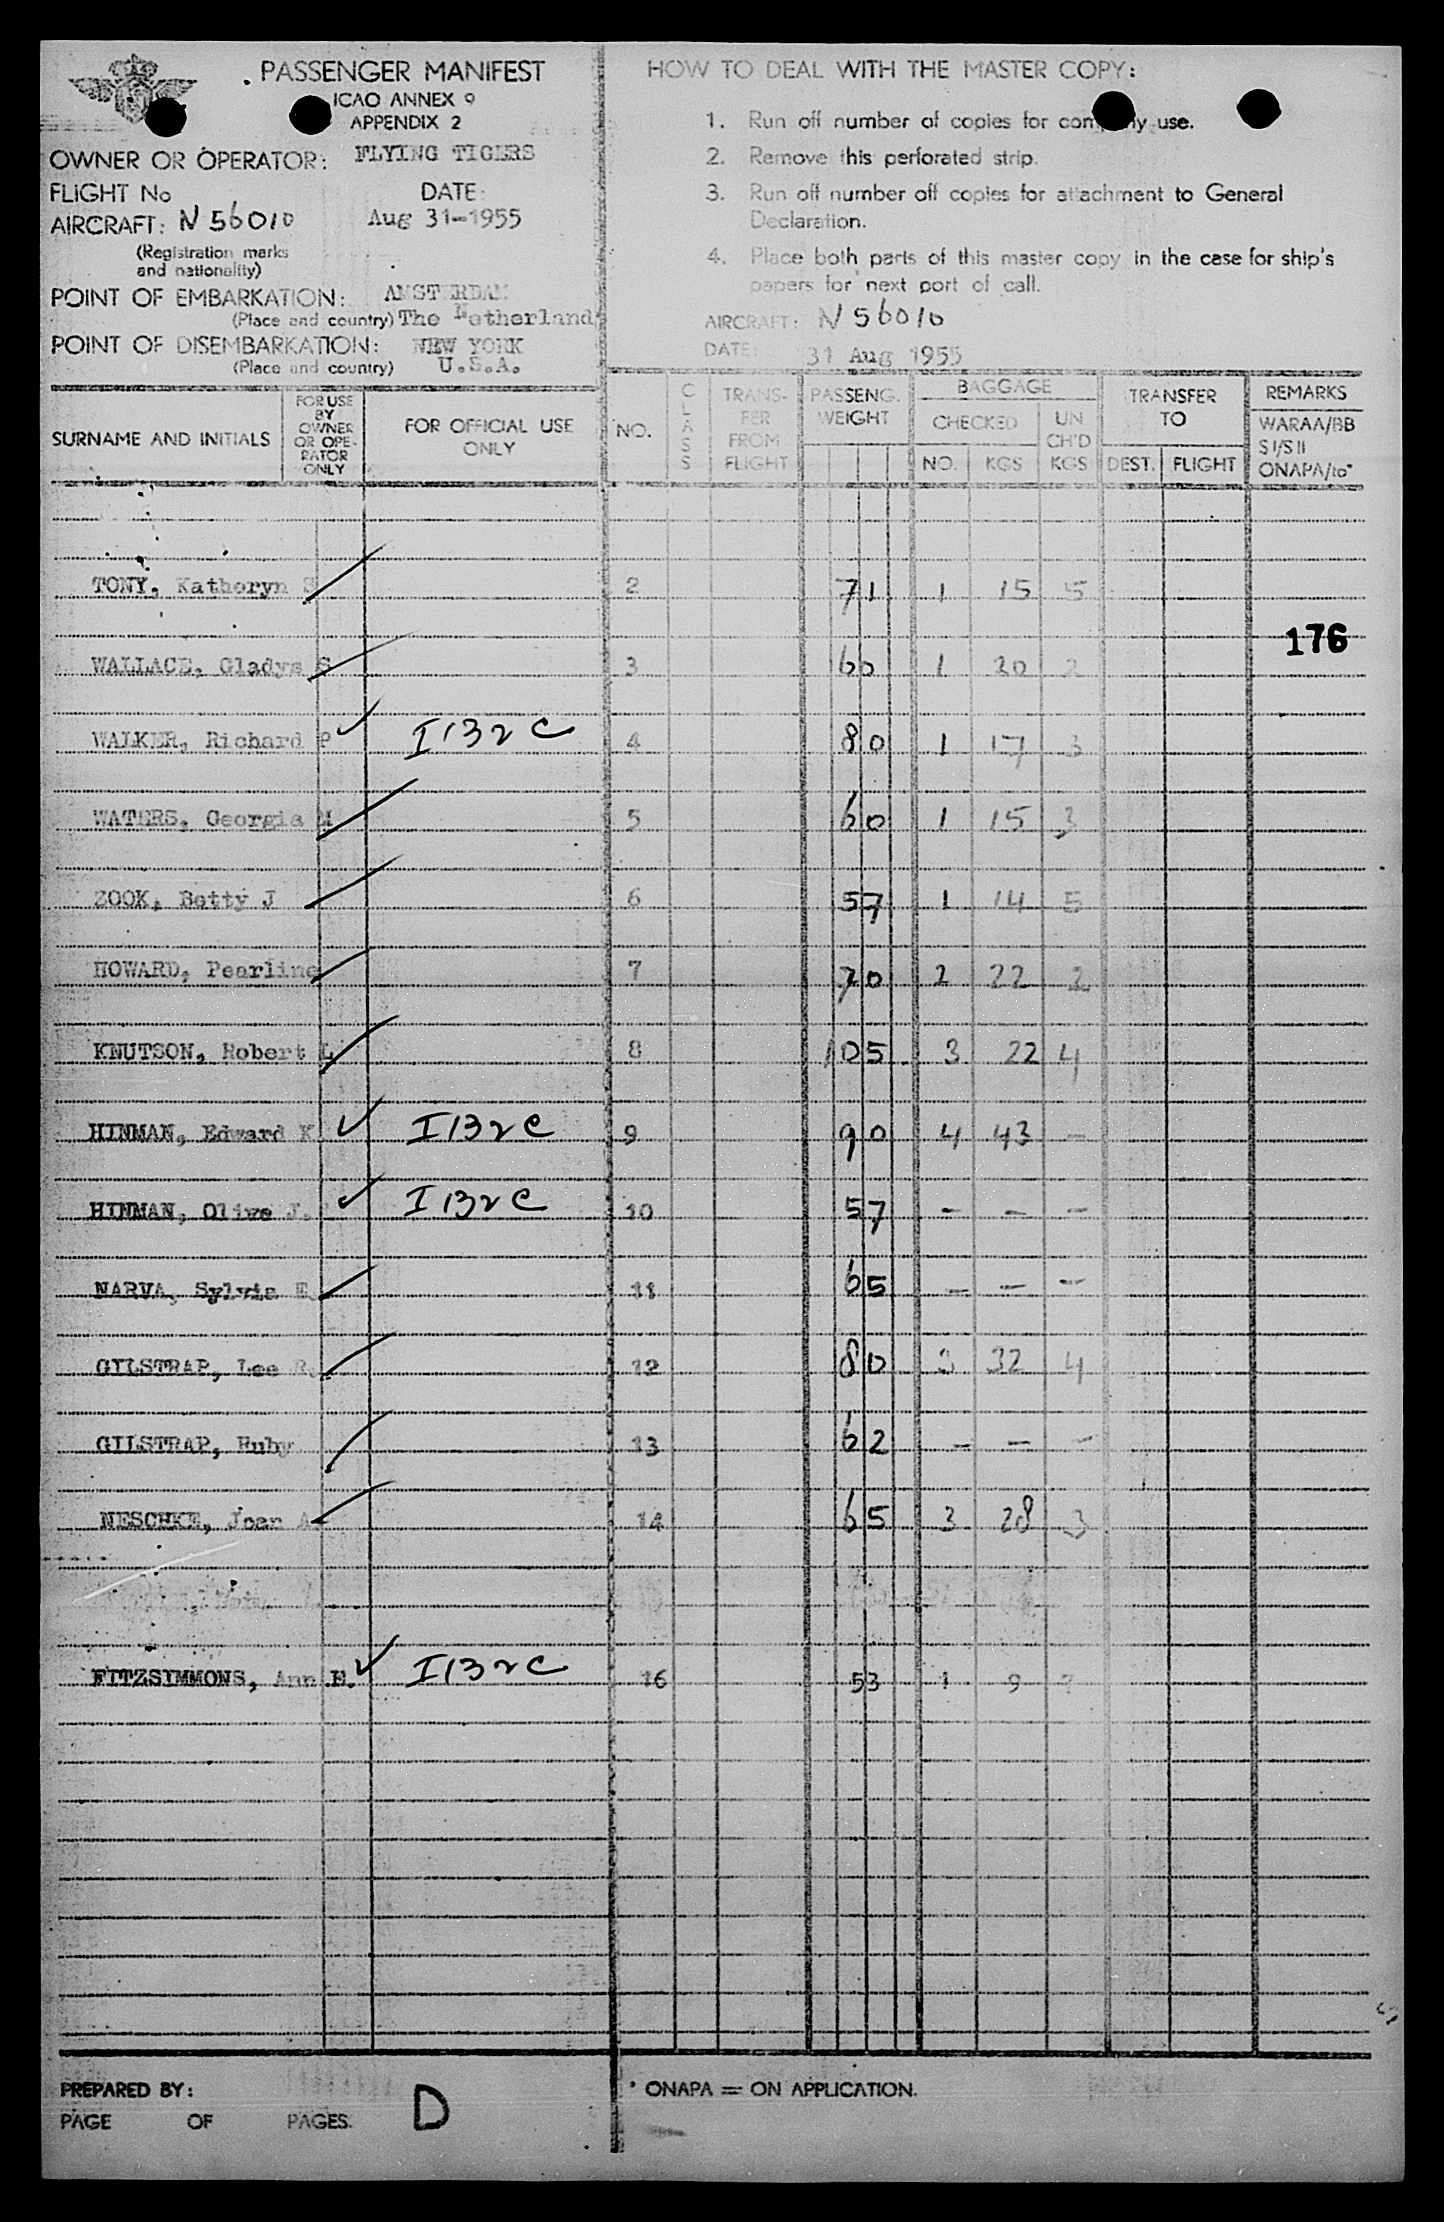 PASSENGER MANIFEST
ICAO ANNEX 9
APPENDIX 2
OWNER OR OPERATOR: FLYING TIGERS
FLIGHT No DATE:
AIRCRAFT: N 56010 Aug 31-1955
(Registration marks
and nationality)
POINT OF EMBARKATION: AMSTERDAM
(Place and country) The Netherlands
POINT OF DISEMBARKATION: NEW YORK
(Place and country) U.S.A.
HOW TO DEAL WITH THE MASTER COPY:
1. Run off number of copies for company use.
2. Remove this perforated strip.
3. Run off number off copies for attachment to General
Declaration.
4. Place both parts of this master copy in the case for ship's
papers for next port of call.
AIRCRAFT: N 56010
DATE: 31 Aug 1955
SURNAME AND INITIALS
FOR USE
BY
OWNER
OR OPE-
RATOR
ONLY
FOR OFFICIAL USE
ONLY
NO.
CLASS
TRANS-
FER
FROM
FLIGHT
PASSENG.
WEIGHT
BAGGAGE
CHECKED
NO. KGS
UN
CH'D
KGS
TRANSFER
TO
DEST. FLIGHT
REMARKS
WARAA/BB
SI/SII
ONAPA/to*
TONY, Katheryn S 2 71 1 15 5
176
WALLACE, Gladys S 3 60 1 20 2
WALKER, Richard P I 132 C 4 80 1 17 3
WATERS, Georgia M 5 60 1 15 3
ZOOK, Betty J 6 57 1 14 5
HOWARD, Pearline 7 70 2 22 2
KNUTSON, Robert L 8 105 3 22 4
HINMAN, Edward K I 132 C 9 90 4 43 -
HINMAN, Olive J. I 132 C 10 57 - - -
NARVA, Sylvia E. 11 65 - - -
GILSTRAP, Lee R. 12 80 3 32 4
GILSTRAP, Ruby 13 62 - - -
NESCHKE, Joan A. 14 65 3 28 3
FITZSIMMONS, Ann E. I 132 C 16 53 1 9
PREPARED BY:
PAGE OF PAGES. D
* ONAPA = ON APPLICATION.